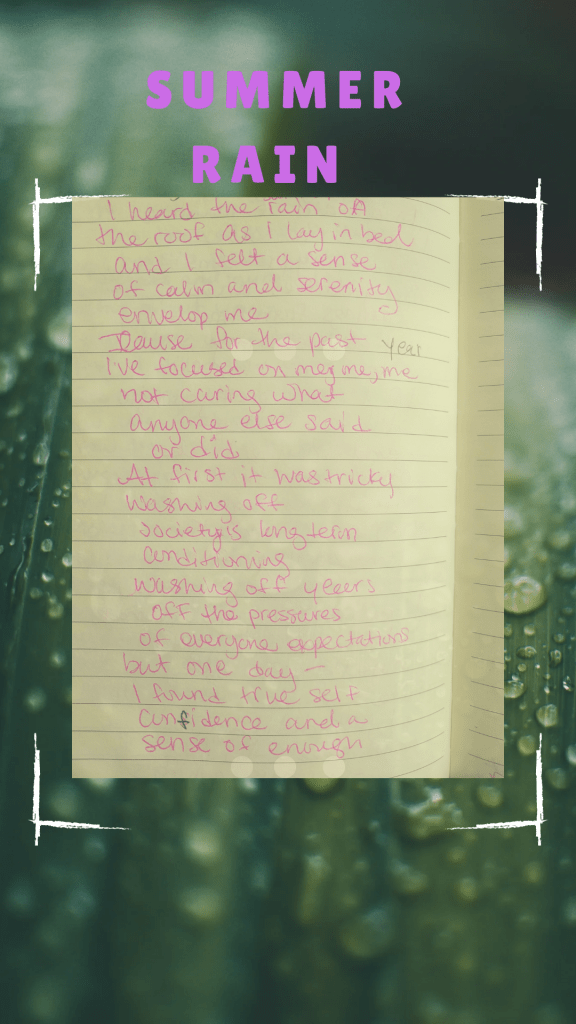 SUMMER
RAIN
I heard the rain on
the roof as I lay in bed
and I felt a sense
of calm and serenity
envelop me
for the past year
I've focused on me, me
not caring what
anyone else said
or did
At first it was tricky
washing off
society's long term
conditioning
washing off yeears
off the pressures
of everyone expectations
but one day —
I found true self
confidence and a
sense of enough